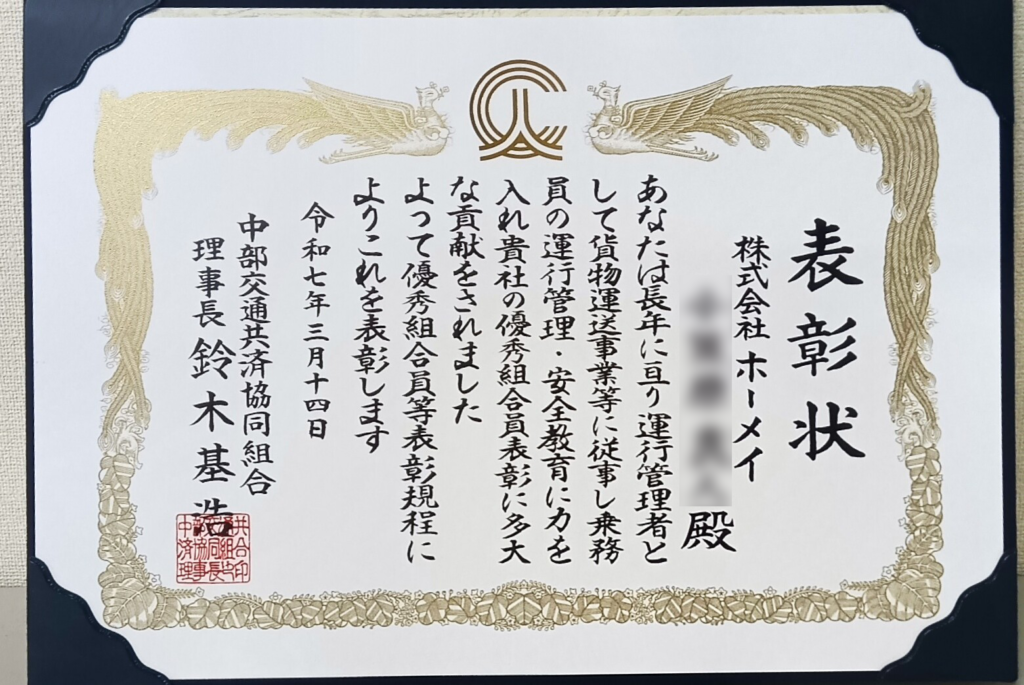 表彰状
株式会社 ホーメイ
殿
あなたは長年に亘り運行管理者と
して貨物運送事業等に従事し乗務
員の運行管理・安全教育に力を
入れ貴社の優秀組合員表彰に多大
な貢献をされました
よって優秀組合員等表彰規程に
よりこれを表彰します
令和七年三月十四日
中部交通共済協同組合
理事長 鈴木基浩